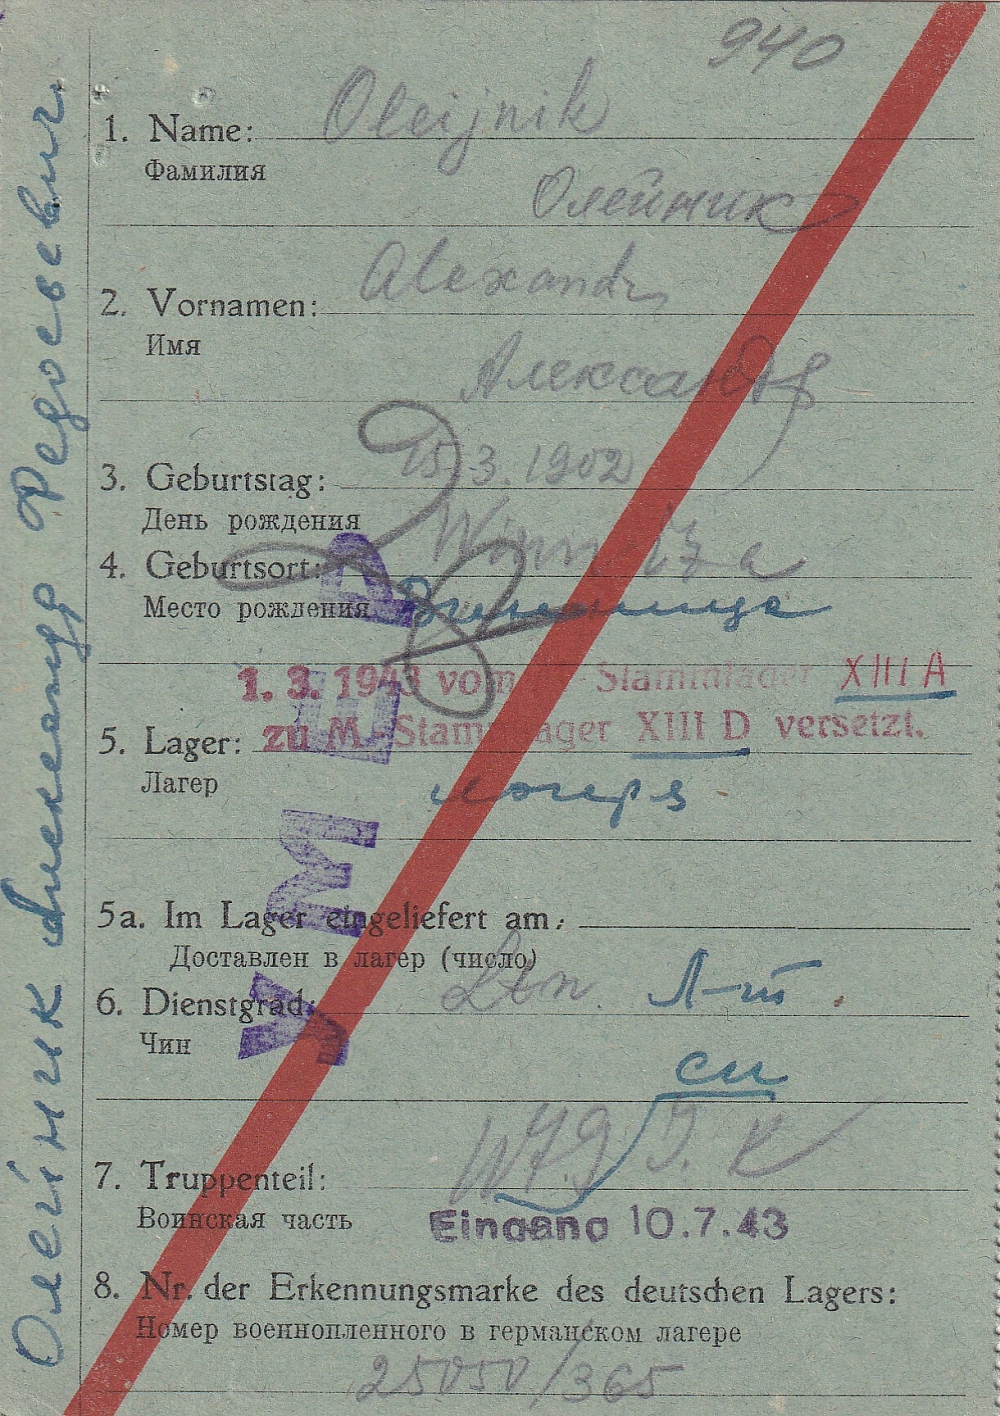 940
1. Name: Oleijnik
Фамилия
Олейник
2. Vornamen: Alexander
Имя
Александр
3. Geburtstag: 15.3.1902
День рождения
4. Geburtsort: Winnitza
Место рождения Винница
1. 3. 1943 vom Stammlager XIII A
5. Lager: zu M.-Stammlager XIII D versetzt.
Лагер лагерь
5a. Im Lager eingeliefert am:
Доставлен в лагер (число)
6. Dienstgrad: Ltn. Л-т.
Чин
сп
7. Truppenteil:
Воинская часть
Eingang 10.7.43
8. Nr. der Erkennungsmarke des deutschen Lagers:
Номер военнопленного в германском лагере
25050/365
Олейник Александр Федосеевич
УМЕР